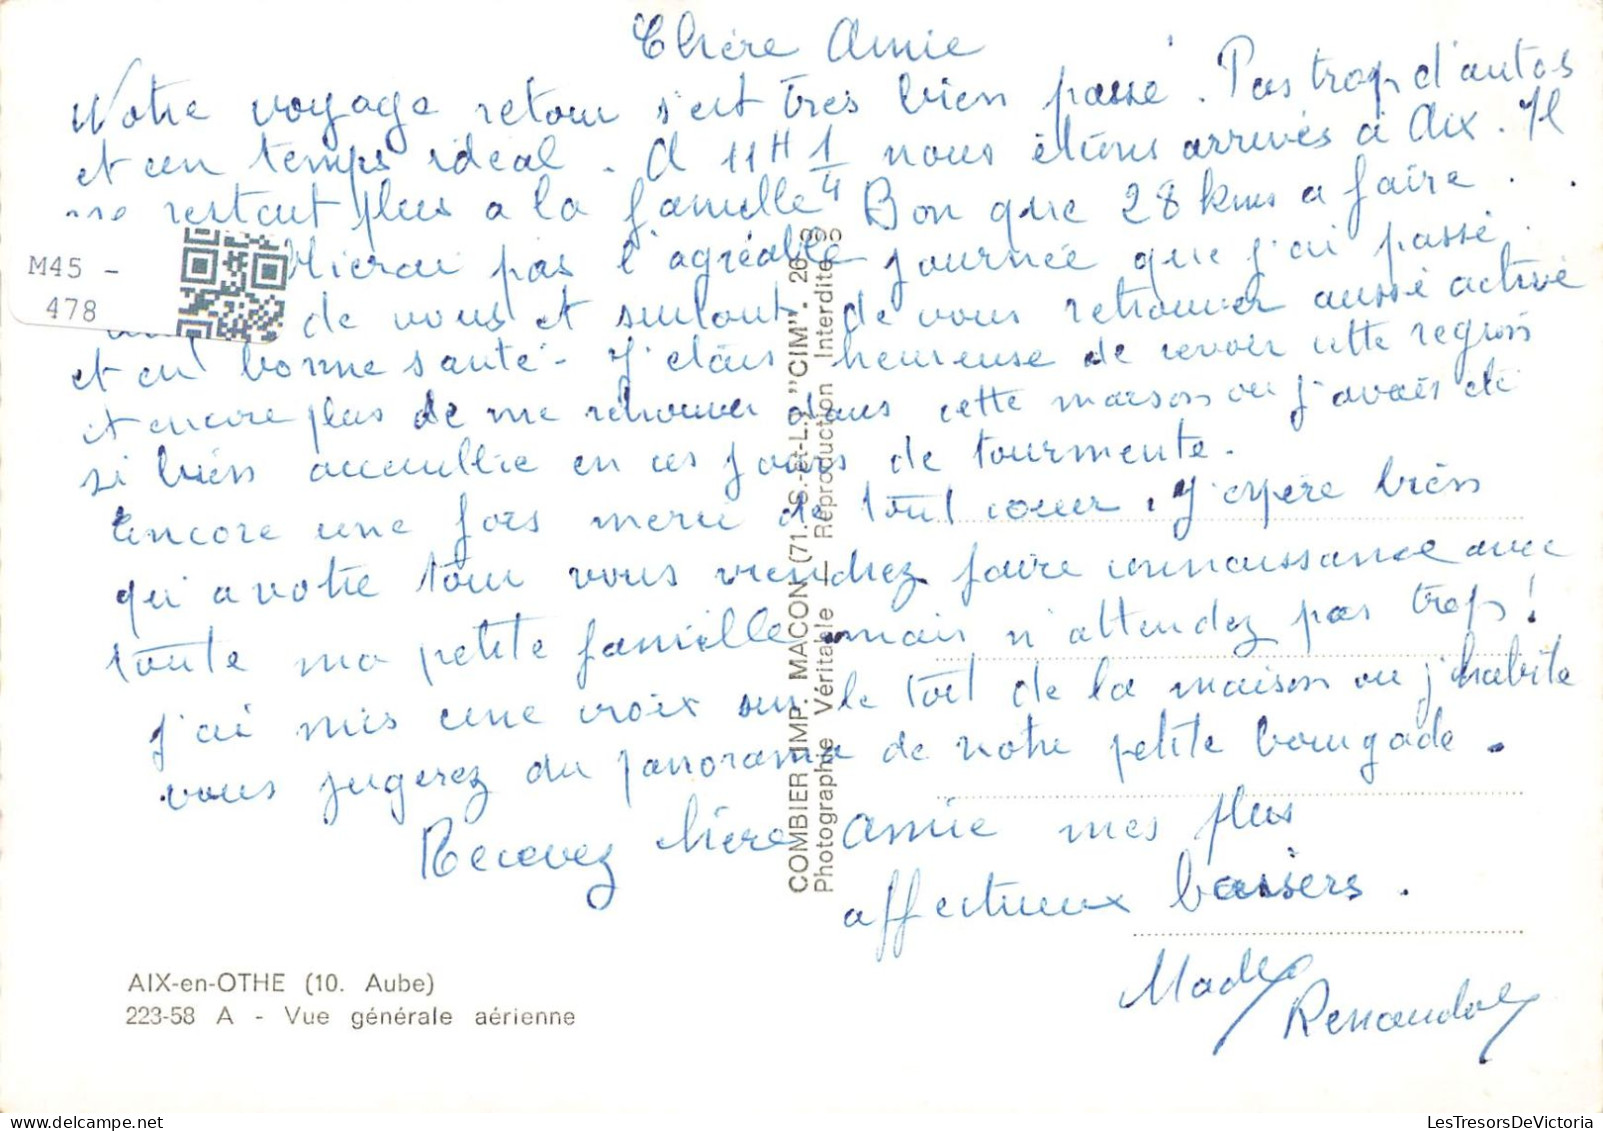 Chère Amie
Notre voyage retour s'est très bien passé. Pas trop d'autos
et un temps idéal. A 11H 1/4 nous étions arrivés à Aix. Il
ne restait plus a la famille Bon que 28 kms a faire.
pas l'agréable journée que j'ai passé
de vous et surtout de vous retrouver aussi active
et en bonne santé - J'étais heureuse de revoir cette region
et encore plus de me retrouver dans cette maison ou j'avais été
si bien accueillie en ces jours de tourmente.
Encore une fois merci de tout coeur. J'espère bien
qu'a votre tour vous viendrez faire connaissance avec
toute ma petite famille mais n'attendez pas trop!
j'ai mis une croix sur le toit de la maison ou j'habite
vous jugerez du panorama de notre petite bourgade.
Recevez chère amie mes plus
affectueux baisers.
Mady
M45 -
478
COMBIER IMP. MACON (71. S.-et-L.) "CIM".
Photographie Véritable — Reproduction Interdite
AIX-en-OTHE (10. Aube)
223-58 A - Vue générale aérienne
LesTresorsDeVictoria